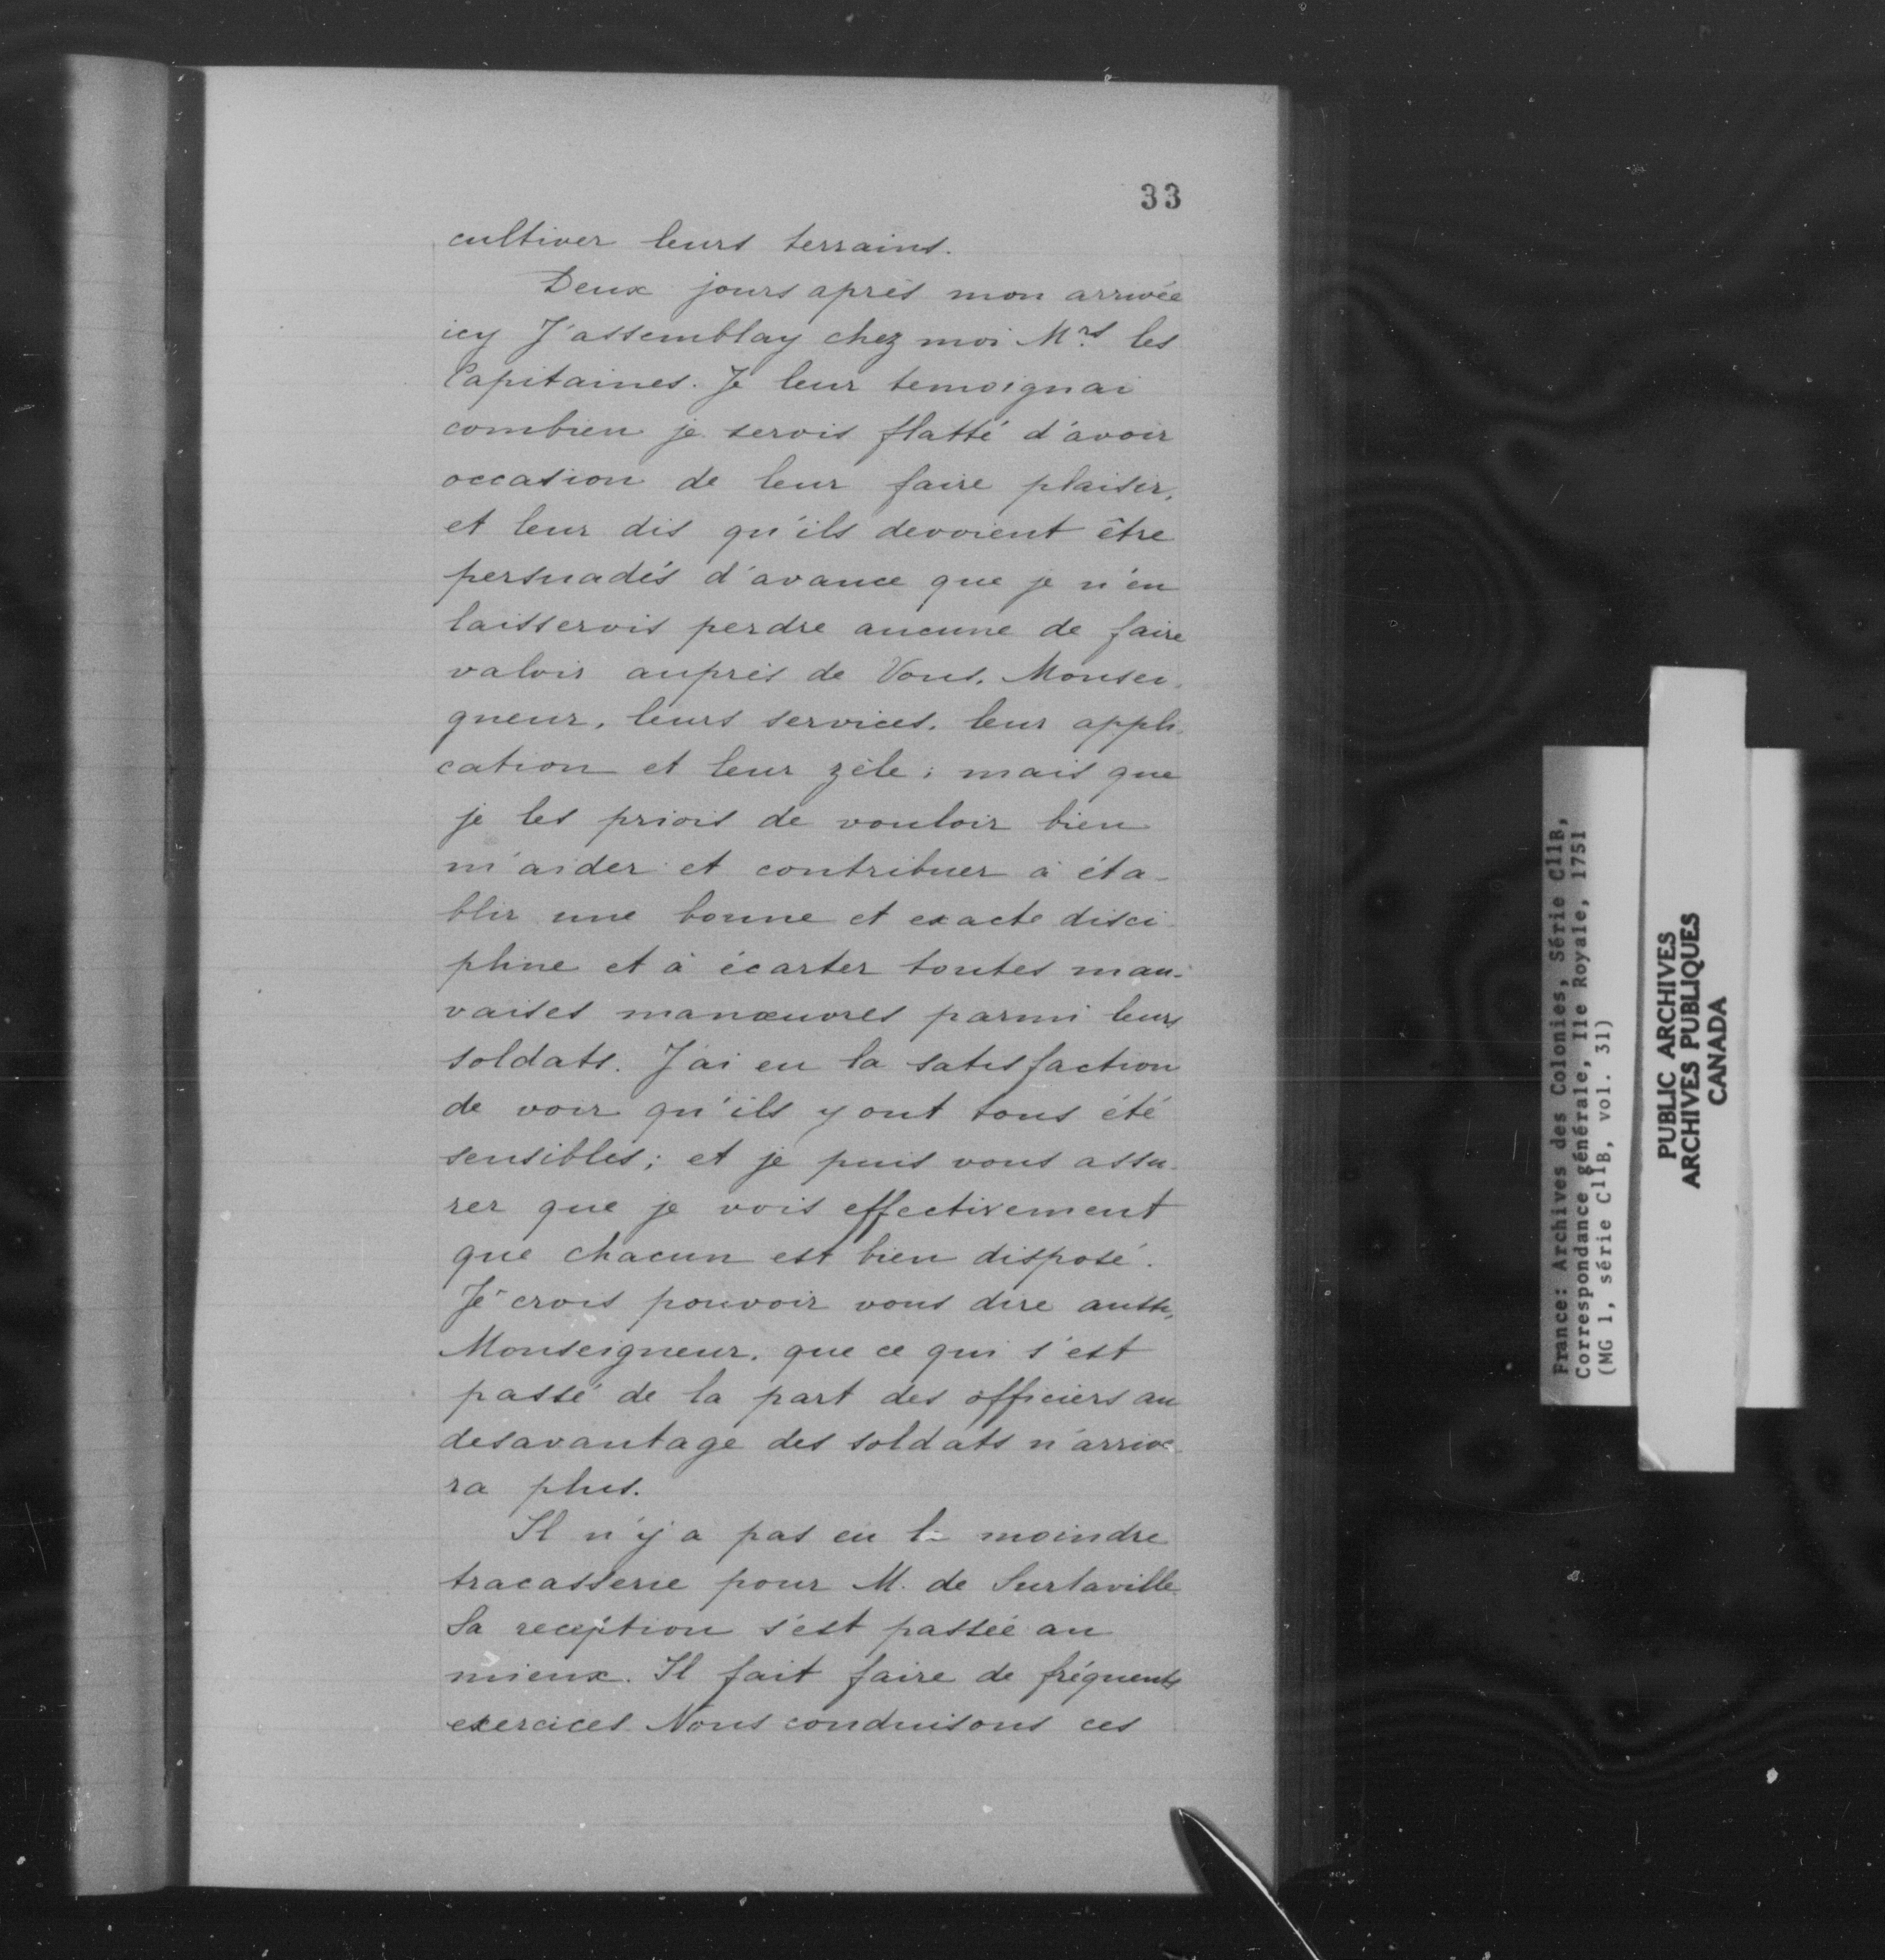 33
cultiver leurs terrains.
Deux jours après mon arrivée
icy J'assemblay chez moi Mrs les
Capitaines. Je leur temoignai
combien je serois flatté d'avoir
occasion de leur faire plaisir,
et leur dis qu'ils devoient être
persuadés d'avance que je n'en
laisserois perdre aucune de faire
valoir auprès de Vous, Monsei-
gneur, leurs services, leur appli-
cation et leur zèle; mais que
je les priois de vouloir bien
m'aider et contribuer à éta-
blir une bonne et exacte disci-
pline et à écarter toutes mau-
vaises manœuvres parmi leurs
soldats. J'ai eu la satisfaction
de voir qu'ils y ont tous été
sensibles; et je puis vous assu-
rer que je vois effectivement
que chacun est bien disposé.
Je crois pouvoir vous dire aussi,
Monseigneur, que ce qui s'est
passé de la part des officiers au
desavantage des soldats n'arrive-
ra plus.
Il n'y a pas eu la moindre
tracasserie pour M. de Surlaville.
Sa reception s'est passée au
mieux. Il fait faire de fréquents
exercices. Nous conduisons ces
France: Archives des Colonies, Série C11B,
Correspondance générale, Ile Royale, 1751
(MG 1, série C11B, vol. 31)
PUBLIC ARCHIVES
ARCHIVES PUBLIQUES
CANADA